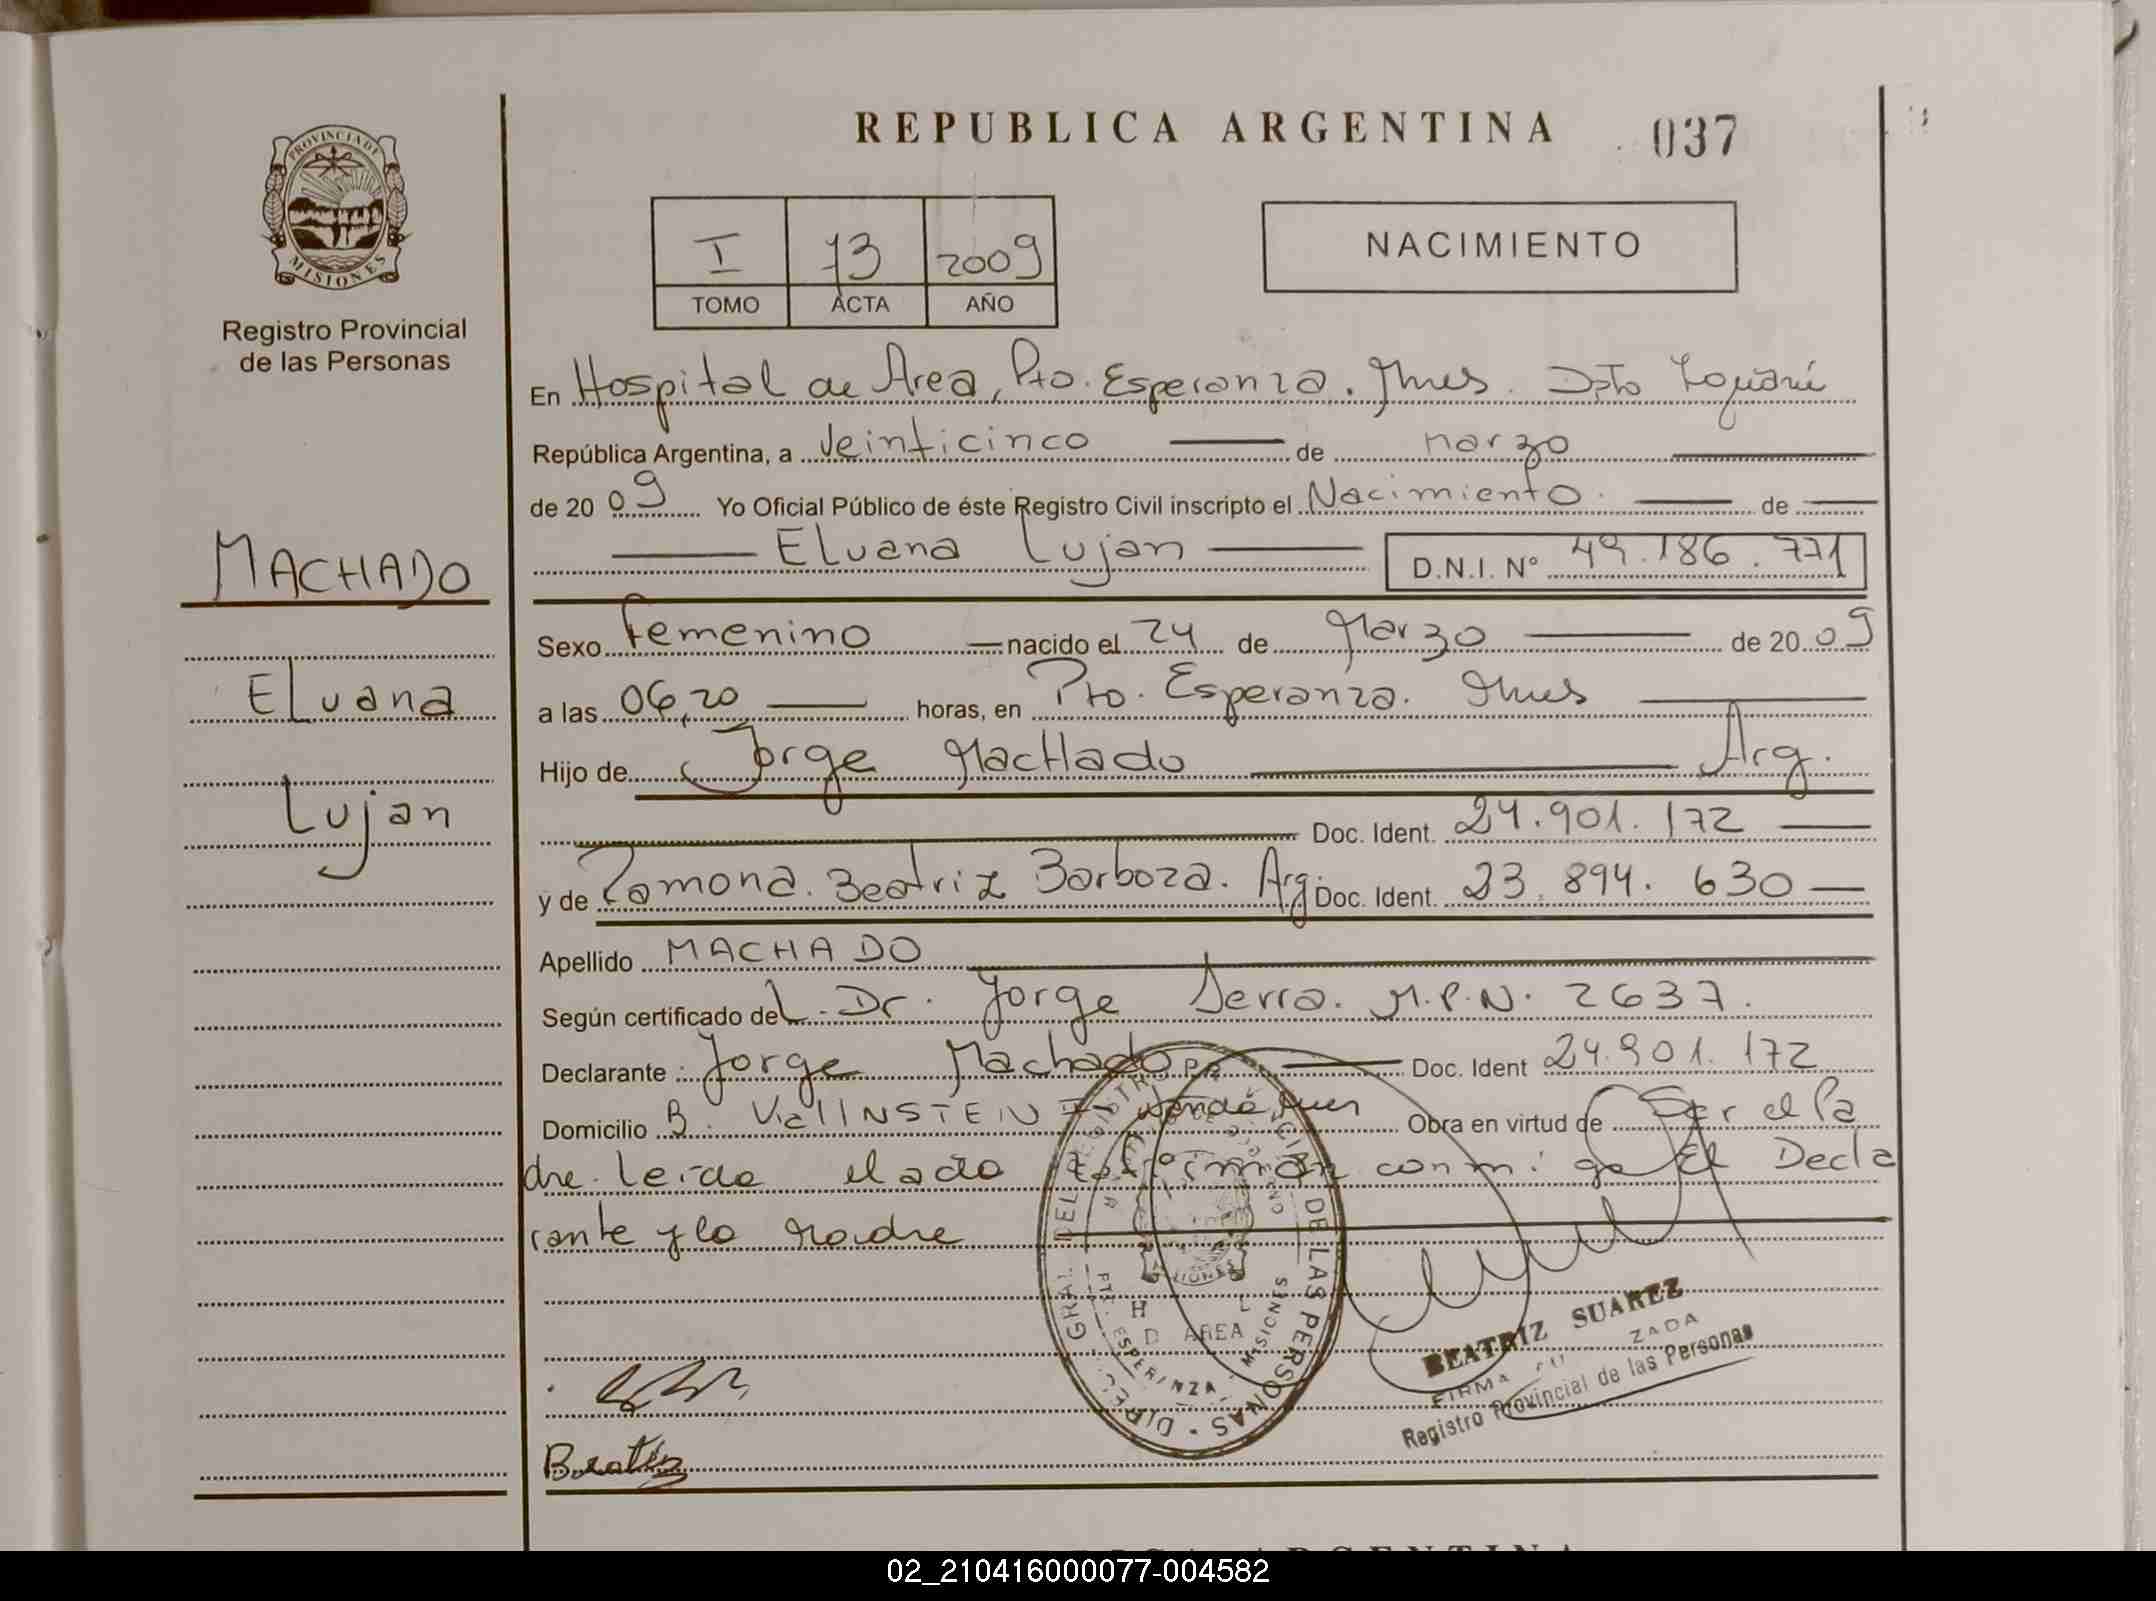 REPUBLICA ARGENTINA
037
PROVINCIA DE
MISIONES
Registro Provincial
de las Personas
I 73 2009
TOMO ACTA AÑO
NACIMIENTO
En Hospital de Area, Pto. Esperanza. Mnes. Dpto Iguazú
República Argentina, a Veinticinco de marzo
de 2009 Yo Oficial Público de éste Registro Civil inscripto el Nacimiento de
Eluana Lujan D.N.I. Nº 49.186.771
MACHADO
Eluana
Lujan
Sexo Femenino nacido el 24 de Marzo de 2009
a las 06,20 horas, en Pto. Esperanza. Mnes
Hijo de Jorge MacHado Arg.
Doc. Ident. 24.901.172
y de Ramona. Beatriz Barboza. Arg. Doc. Ident. 23.894.630
Apellido MACHADO
Según certificado del Dr. Jorge Serra. M.P.N. 2637.
Declarante : Jorge Machado Doc. Ident 24.901.172
Domicilio B. Obra en virtud de Ser el Pa
dre. Leida el acta conmigo El Decla
rante y la Madre
DIREC. GRAL DEL REGISTRO PROVINCIAL DE LAS PERSONAS
AREA
PTO. ESPERANZA MISIONES
BEATRIZ SUAREZ
FIRMA
Registro Provincial de las Personas
Beatriz
02_210416000077-004582